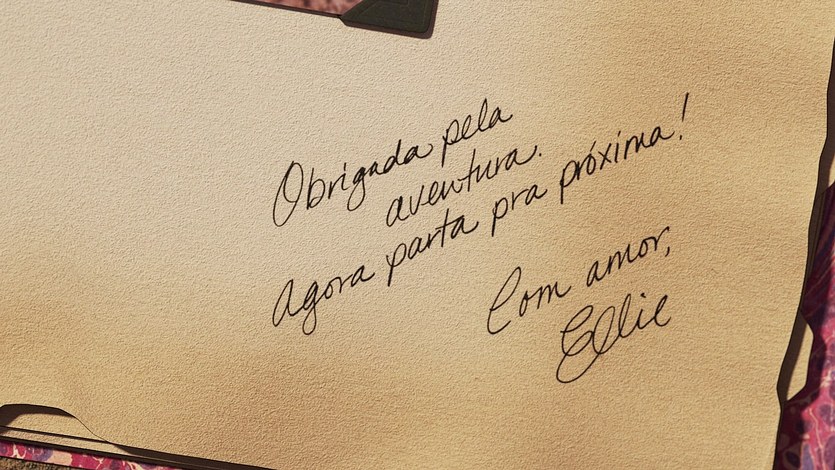 Obrigada pela
aventura.
Agora parta pra próxima!
Com amor,
Ellie